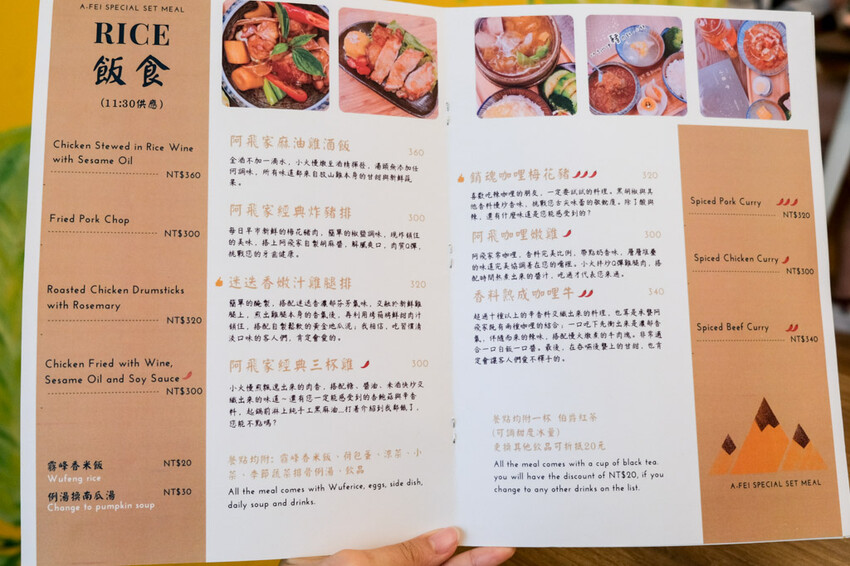 A-FEI SPECIAL SET MEAL
RICE
飯食
(11:30供應)
Chicken Stewed in Rice Wine
with Sesame Oil
NT$360
Fried Pork Chop
NT$300
Roasted Chicken Drumsticks
with Rosemary
NT$320
Chicken Fried with Wine,
Sesame Oil and Soy Sauce
NT$300
霧峰香米飯 NT$20
Wufeng rice
例湯換南瓜湯 NT$30
Change to pumpkin soup
阿飛家麻油雞酒飯 360
全酒不加一滴水,小火慢燉至酒精揮發,湯頭無添加任
何調味,所有味道都來自放山雞本身的甘甜與新鮮蔬
果。
阿飛家經典炸豬排 300
每日早市新鮮的梅花豬肉,簡單的椒鹽調味,現炸鎖住
的美味,搭上阿飛家自製胡麻醬,鮮嫩爽口,肉質Q彈,
挑戰您的牙齒健康。
迷迭香嫩汁雞腿排 320
簡單的醃製,搭配迷迭香濃郁芬芳氣味,交融於新鮮雞
腿上,煎出雞腿本身的香氣後,再利用烤箱將鮮甜肉汁
鎖住,搭配自製鬆軟的黃金地瓜泥,我相信,吃習慣清
淡口味的客人們,肯定會愛的。
阿飛家經典三杯雞 300
小火慢煎飄逸出來的肉香,搭配糖、醬油、米酒快炒交
織出來的味道-還有您一定能感受到的杏鮑菇與辛香
料,起鍋前淋上純手工黑麻油...打著介紹到我都餓了,
您能不點嗎?
餐點均附:霧峰香米飯、荷包蛋、涼菜、小
菜、季節蔬菜排骨例湯、飲品
All the meal comes with Wuferice, eggs, side dish,
daily soup and drinks.
銷魂咖哩梅花豬 320
喜歡吃辣咖哩的朋友,一定要試試的料理。黑胡椒與其
他香料慢炒香味,挑戰您舌尖味蕾的敏銳度。除了酸與
辣,還有什麼味道是您能感受到的?
阿飛咖哩嫩雞 300
阿飛家常咖哩,香料完美比例,帶點奶香味,層層堆疊
的味道完美協調著在您的嘴裡。小火拌炒Q彈雞腿肉,搭
配時間熬煮出來的醬汁,吃過才代表您來過。
香料熟成咖哩牛 340
超過十種以上的辛香料交織出來的料理,也算是承襲阿
飛家既有兩種咖哩的結合,一口吃下先衝出來是濃郁香
氣,伴隨而來的辣味,搭配慢火燉煮的牛肉塊。非常適
合一口白飯一口醬。最後,在吞嚥後襲上的甘甜,也肯
定會讓客人們愛不釋手的。
餐點均附一杯 伯爵紅茶
(可調甜度冰量)
更換其他飲品可折抵20元
All the meal comes with a cup of black tea.
you will have the discount of NT$20, if you
change to any other drinks on the list.
Spiced Pork Curry
NT$320
Spiced Chicken Curry
NT$300
Spiced Beef Curry
NT$340
A-FEI SPECIAL SET MEAL